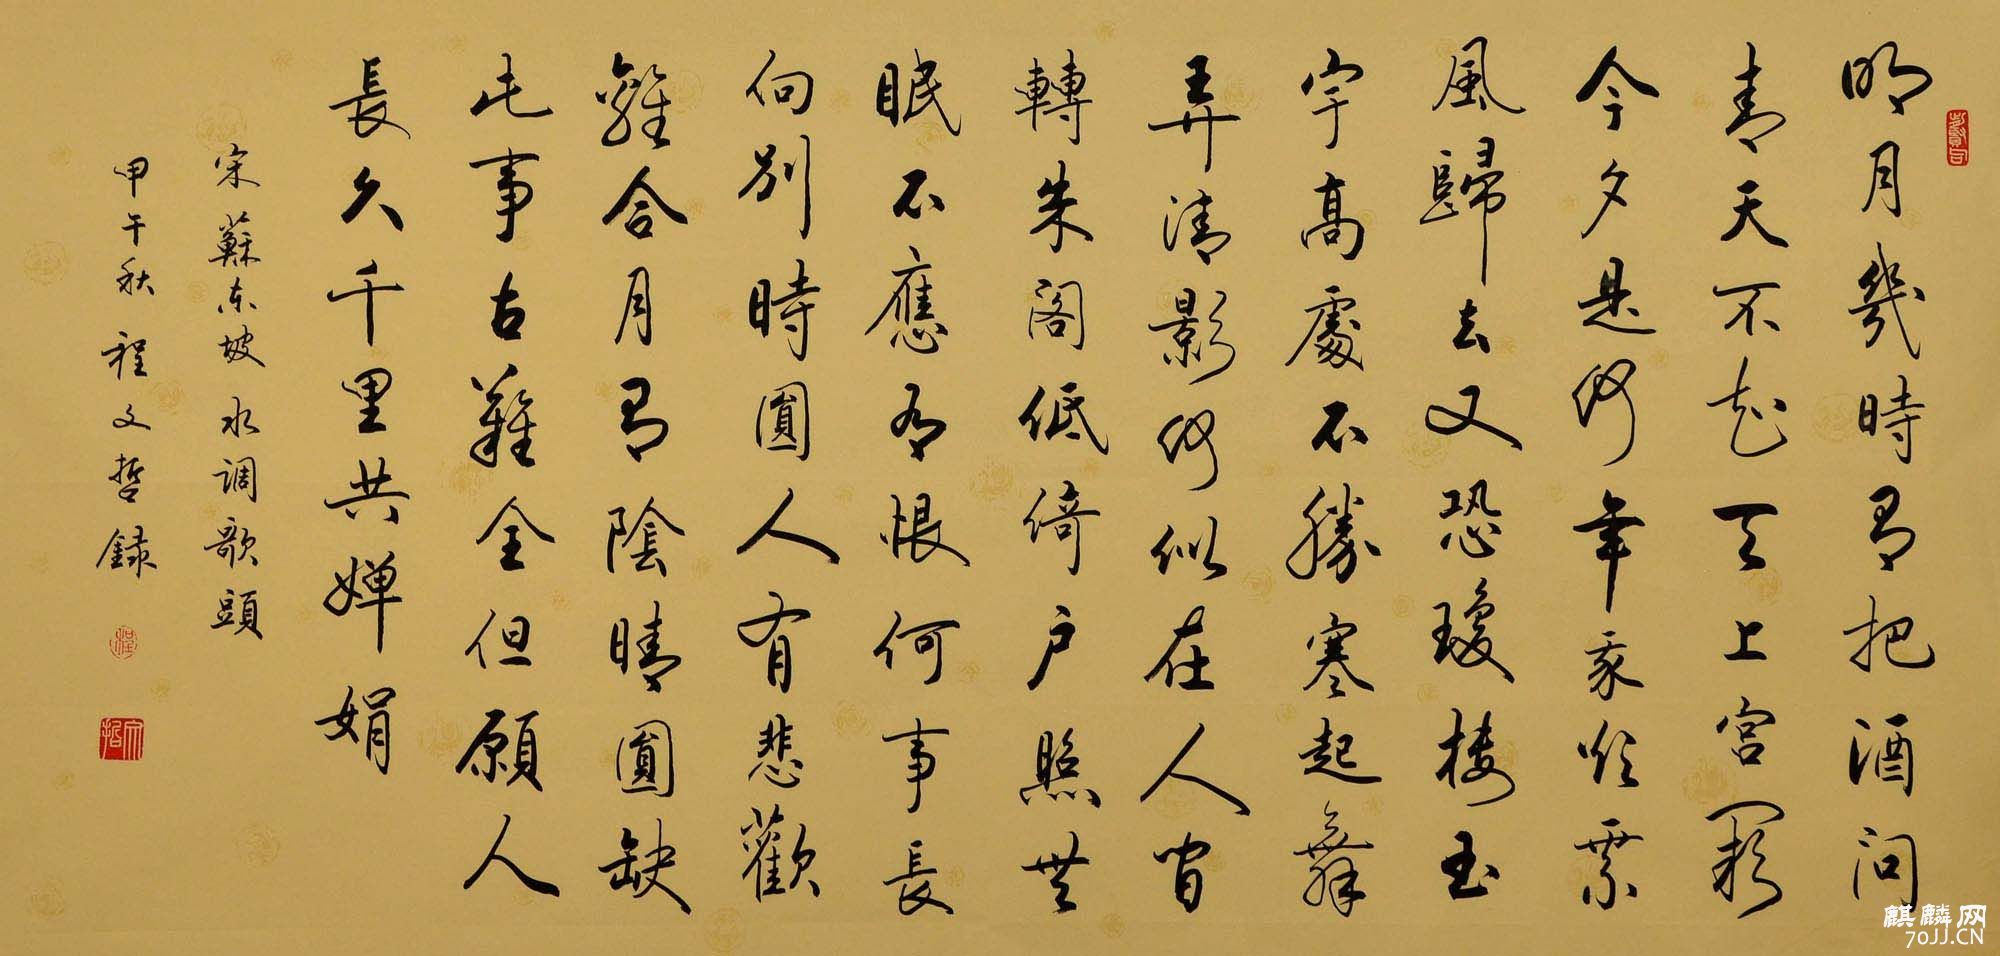 明月幾時有把酒問
青天不知天上宮闕
今夕是何年我欲乘
風歸去又恐瓊樓玉
宇高處不勝寒起舞
弄清影何似在人間
轉朱閣低綺戶照無
眠不應有恨何事長
向別時圓人有悲歡
離合月有陰晴圓缺
此事古難全但願人
長久千里共婵娟
宋蘇东坡水调歌頭
甲午秋程文哲録
程
文哲
麒麟网
70JJ.CN